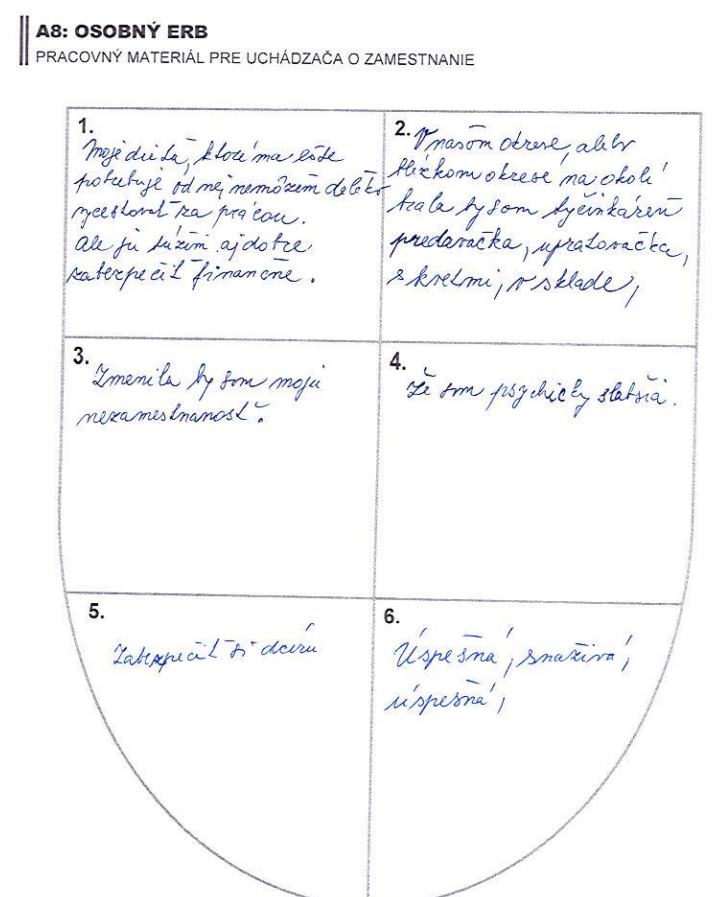 A8: OSOBNÝ ERB
PRACOVNÝ MATERIÁL PRE UCHÁDZAČA O ZAMESTNANIE
1.
Moje dieťa, ktoré ma ešte
potrebuje od nej nemôžem ďaleko
vycestovať za prácou.
Ale ju túžim aj dobre
zabezpečiť finančne.
2.
V našom okrese, alebo
blízkom okrese na okolí
brala by som
predavačka, upratovačka,
s kvetmi, v sklade,
3.
Zmenila by som moju
nezamestnanosť.
4.
Že som psychicky slabšia.
5.
Zabezpečiť si dcéru
6.
Úspešná, snaživá,
úspešná,